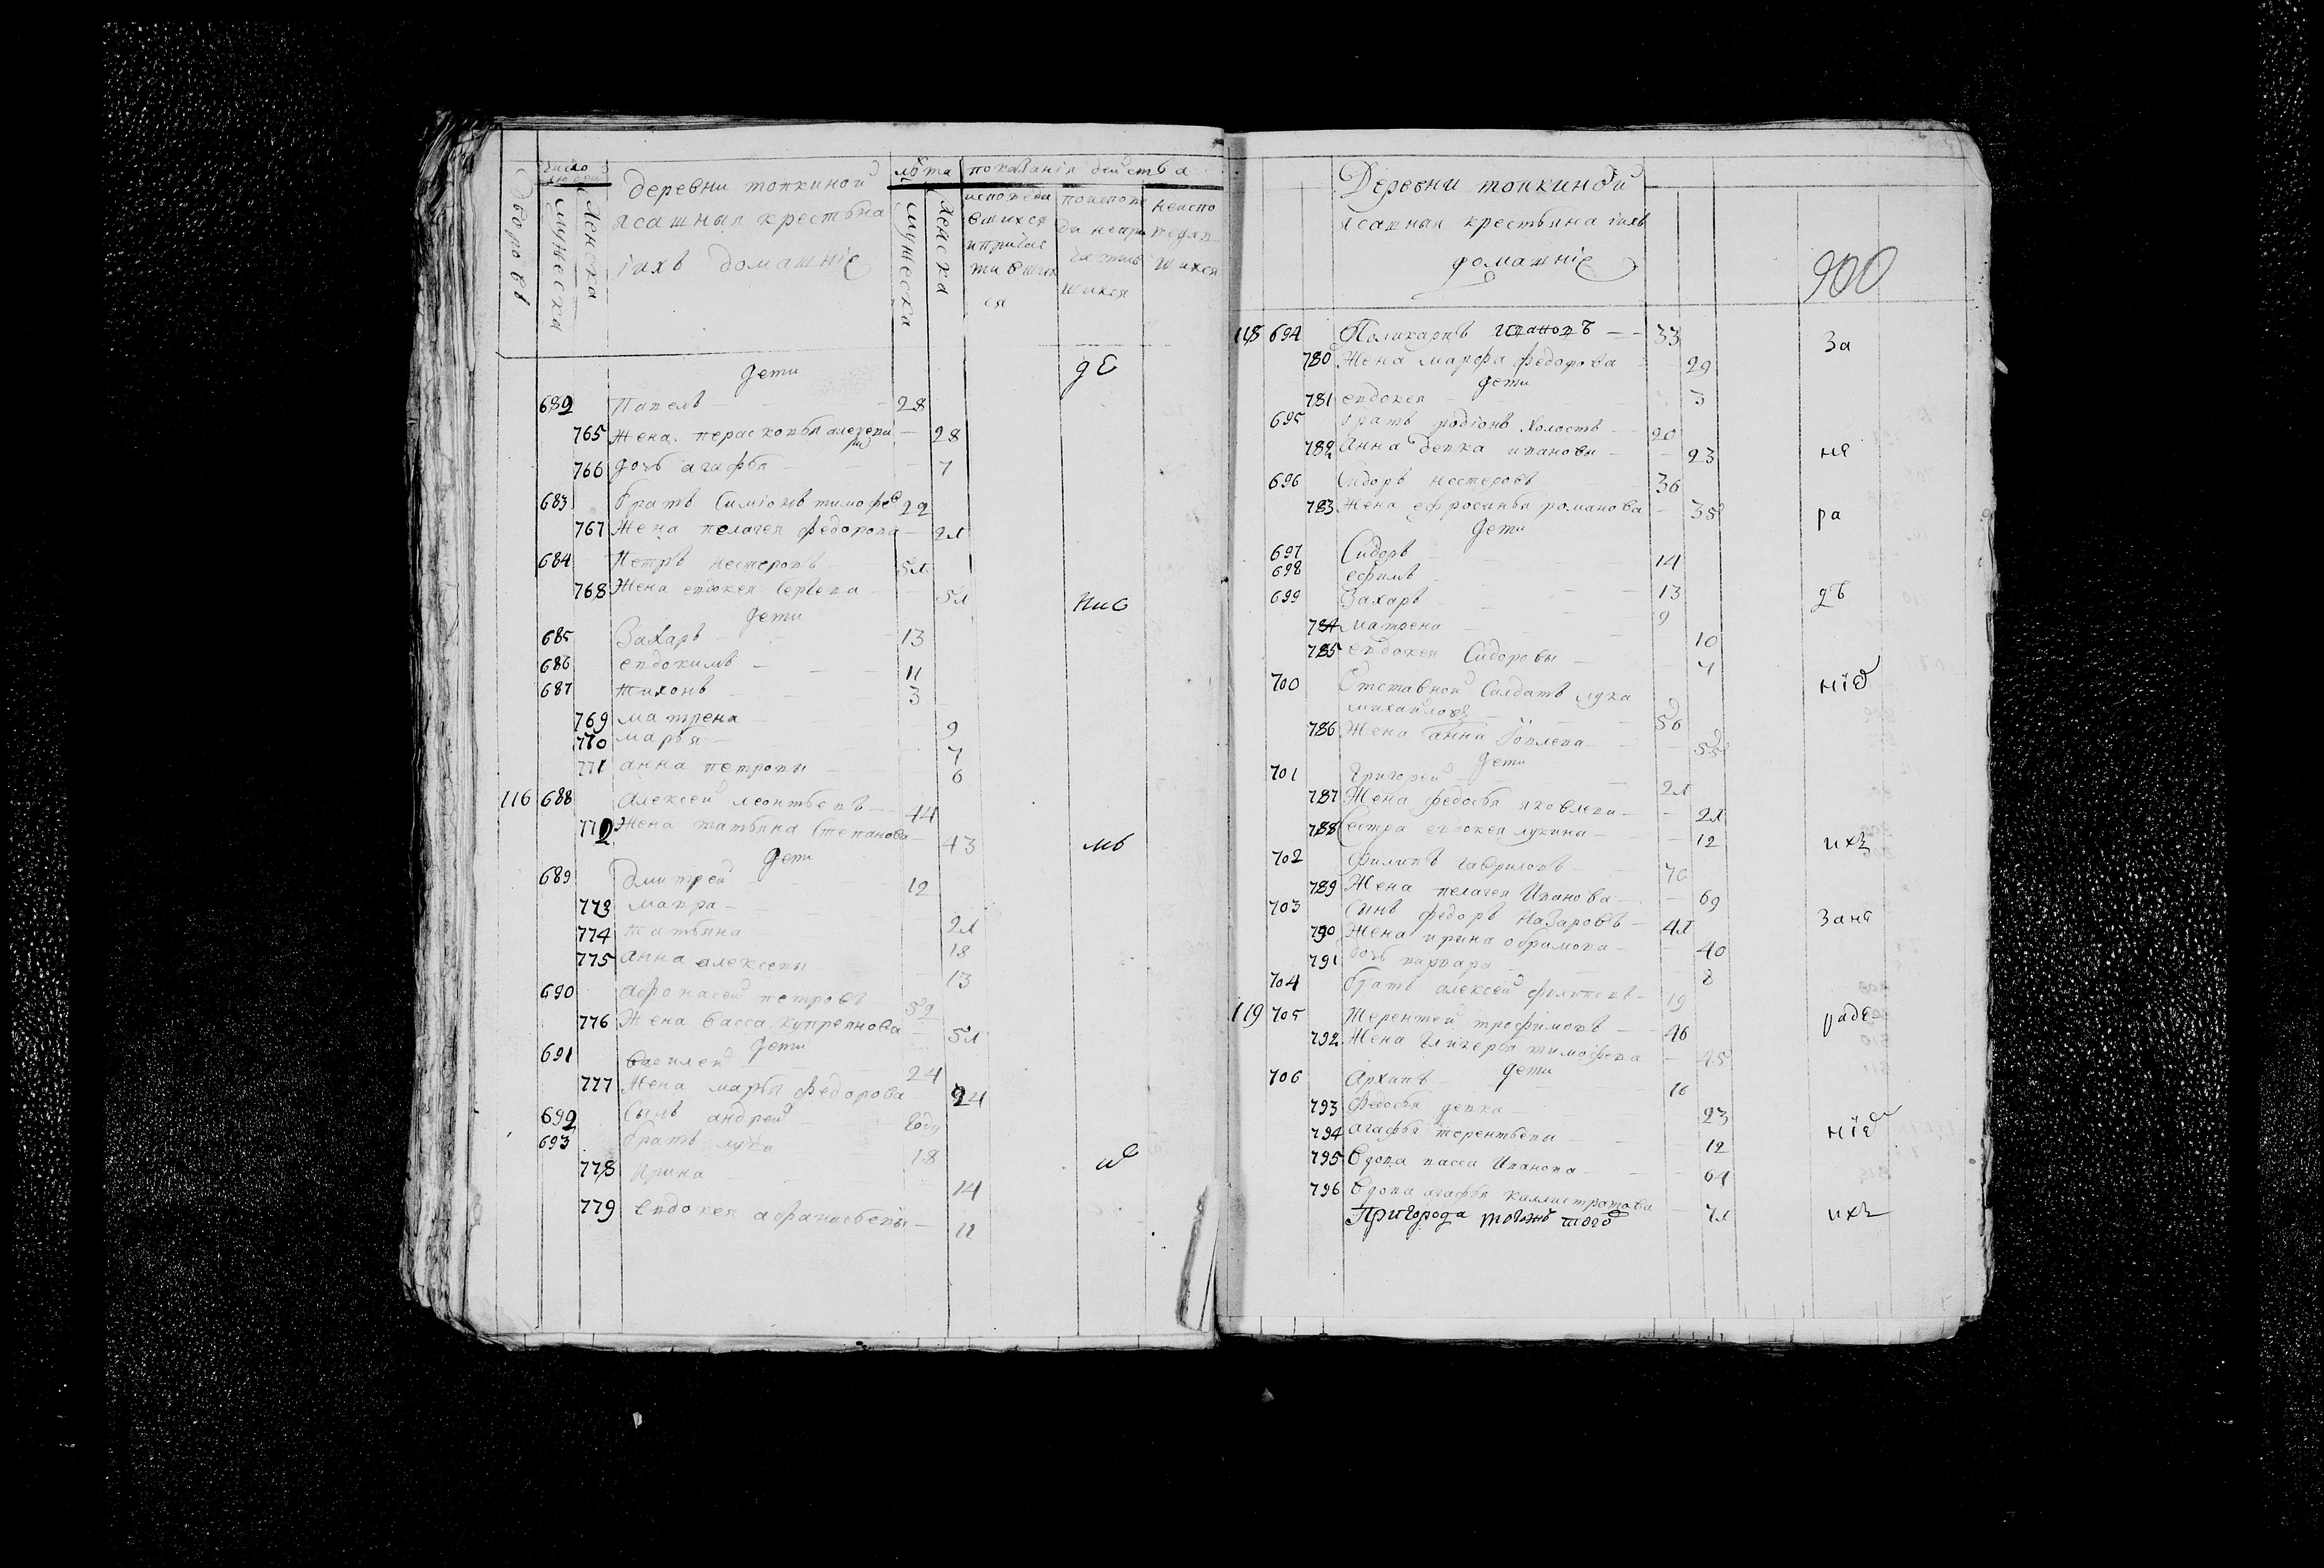 Дворовъ
число людей
мужеска
женска
деревни топкиной
ясашныя крестьяна
ихъ домашніе
лѣта
мужеска
женска
показанія действа
исповеда
вшихся
и приіас
тивших
ся
по испове
ди непри
частив
шихся
неиспо
ведав
шихся
дети
дЕ
682 Павелъ 28
765 Жена перасковья алеѯеева 28
766 дочь агафья 7
683 братъ Симіонъ тимофее 22
767 Жена пелагея федорова 2л
684 Петръ нестеровъ 5л
768 Жена евдокея Сергева 5л
дети
685 Захаръ 13
686 евдокимъ 11
687 тихонъ 3
769 матрена 9
770 марья 7
771 анна петровы 6
116 688 алексей леонтьевъ 44
772 Жена татьяна Степанова 43
дети
689 дмитрей 12
773 мавра 2л
774 татьяна 18
775 анна алексеевы 13
690 афонасей петровъ 59
776 Жена васса купреянова 5л
дети
691 василей 24
777 Жена марья федорова 24
692 Сынъ андрей году
693 братъ лука 18
778 Ирина 14
779 евдокея афанасьевы 11
Деревни топкиной
ясашныя крестьяна ихъ
домашніе
900
118 694 Поликарпъ Ивановъ 33
за
780 Жена марфа федорова 29
дети
781 евдокея 3
695 братъ родіонъ холостъ 20
782 Анна девка иванова 23
не
696 Сидоръ нестеровъ 36
783 Жена ефросинья романова 35
ра
дети
697 Сидоръ 14
698 ефимъ 13
699 Захаръ 9
дѣ
784 матрена 10
785 евдокея Сидоровы 4
700 Отставной Салдатъ лука
михайловъ 56
ніе
786 Жена анна Іовлева 55
дети
701 Григорей 2л
787 Жена федосья яковлева 2л
788 Сестра евдокея лукина 12
ихъ
702 филипъ гавриловъ 70
789 Жена пелагея Иванова 69
703 сынъ федоръ Назаровъ 4л
Зане
790 Жена ирина обрамова 40
791 дочь варвара 8
704 братъ алексей филиповъ 19
119 705 Терентей трофимовъ 46
раде
792 Жена гликерья тимофева 45
дети
706 Архипъ 16
793 Федосья девка 23
794 агафья терентьевы 12
ніе
795 вдова васса Иванова 64
796 вдова агафья каллистратова 7л
ихъ
Пригорода тогожъ того